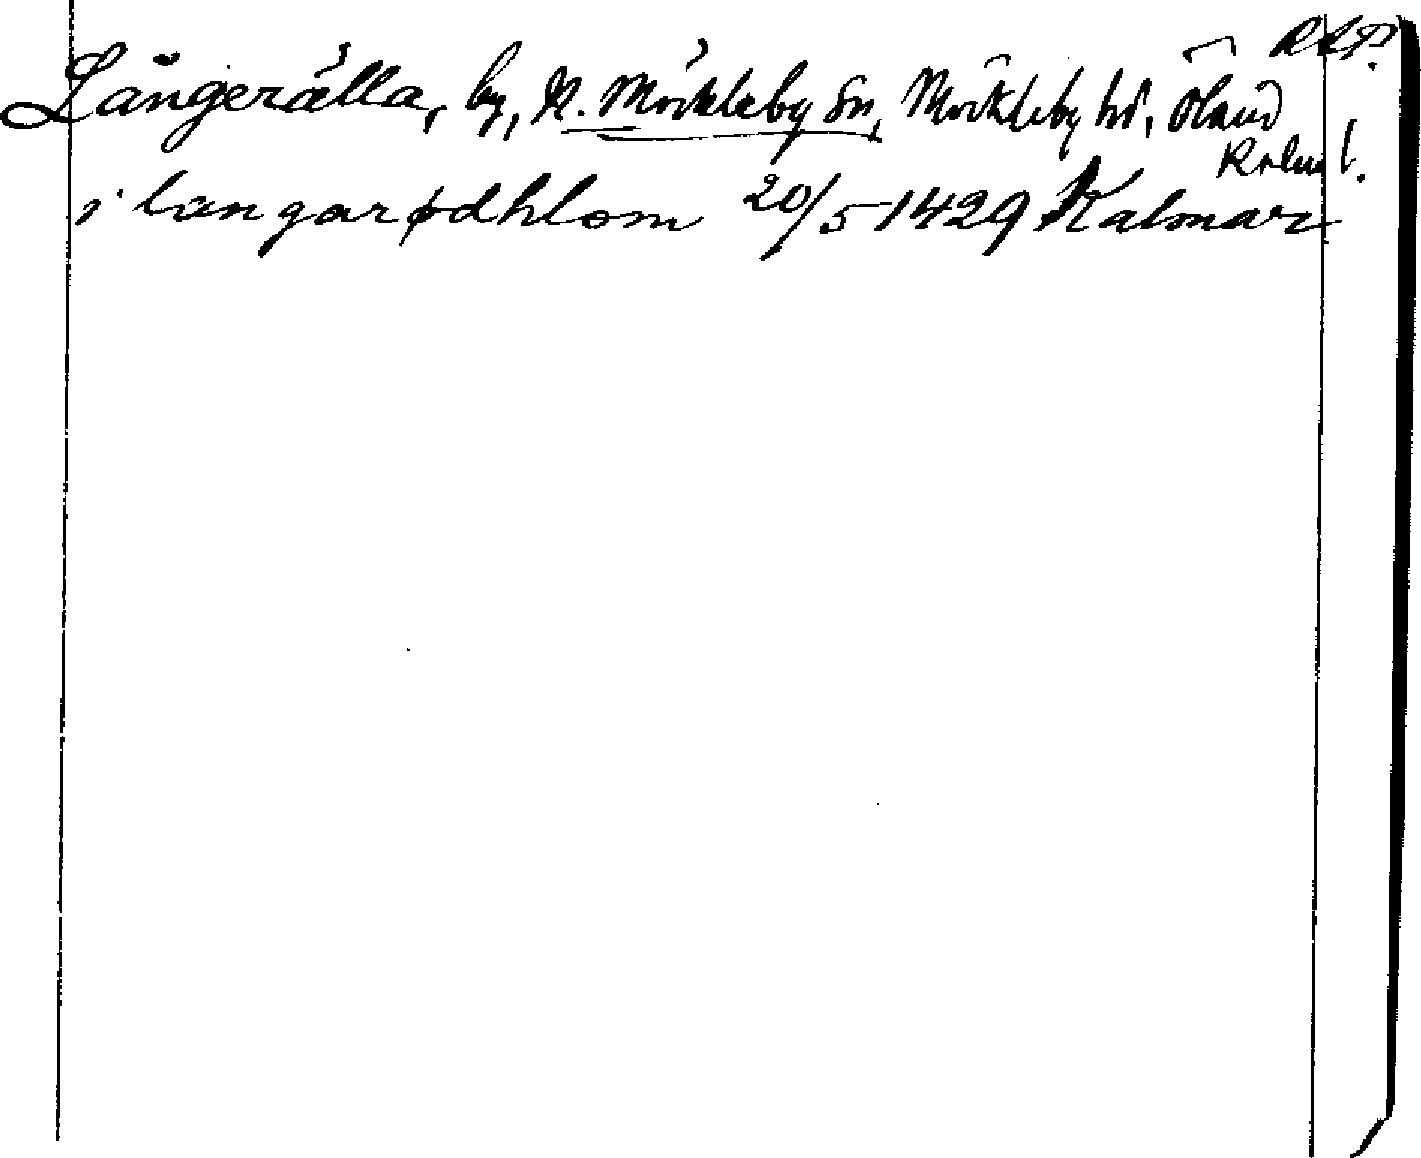 RAP.
Långerälla, by, N. Möckleby sn, Möckleby hd, Öland
i langarødhlom 20/5 1429 Kalmar